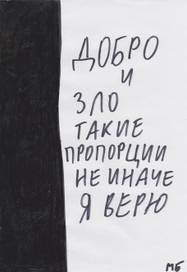 ДОБРО
И
ЗЛО
ТАКИЕ
ПРОПОРЦИИ
НЕ ИНАЧЕ
Я ВЕРЮ
МБ